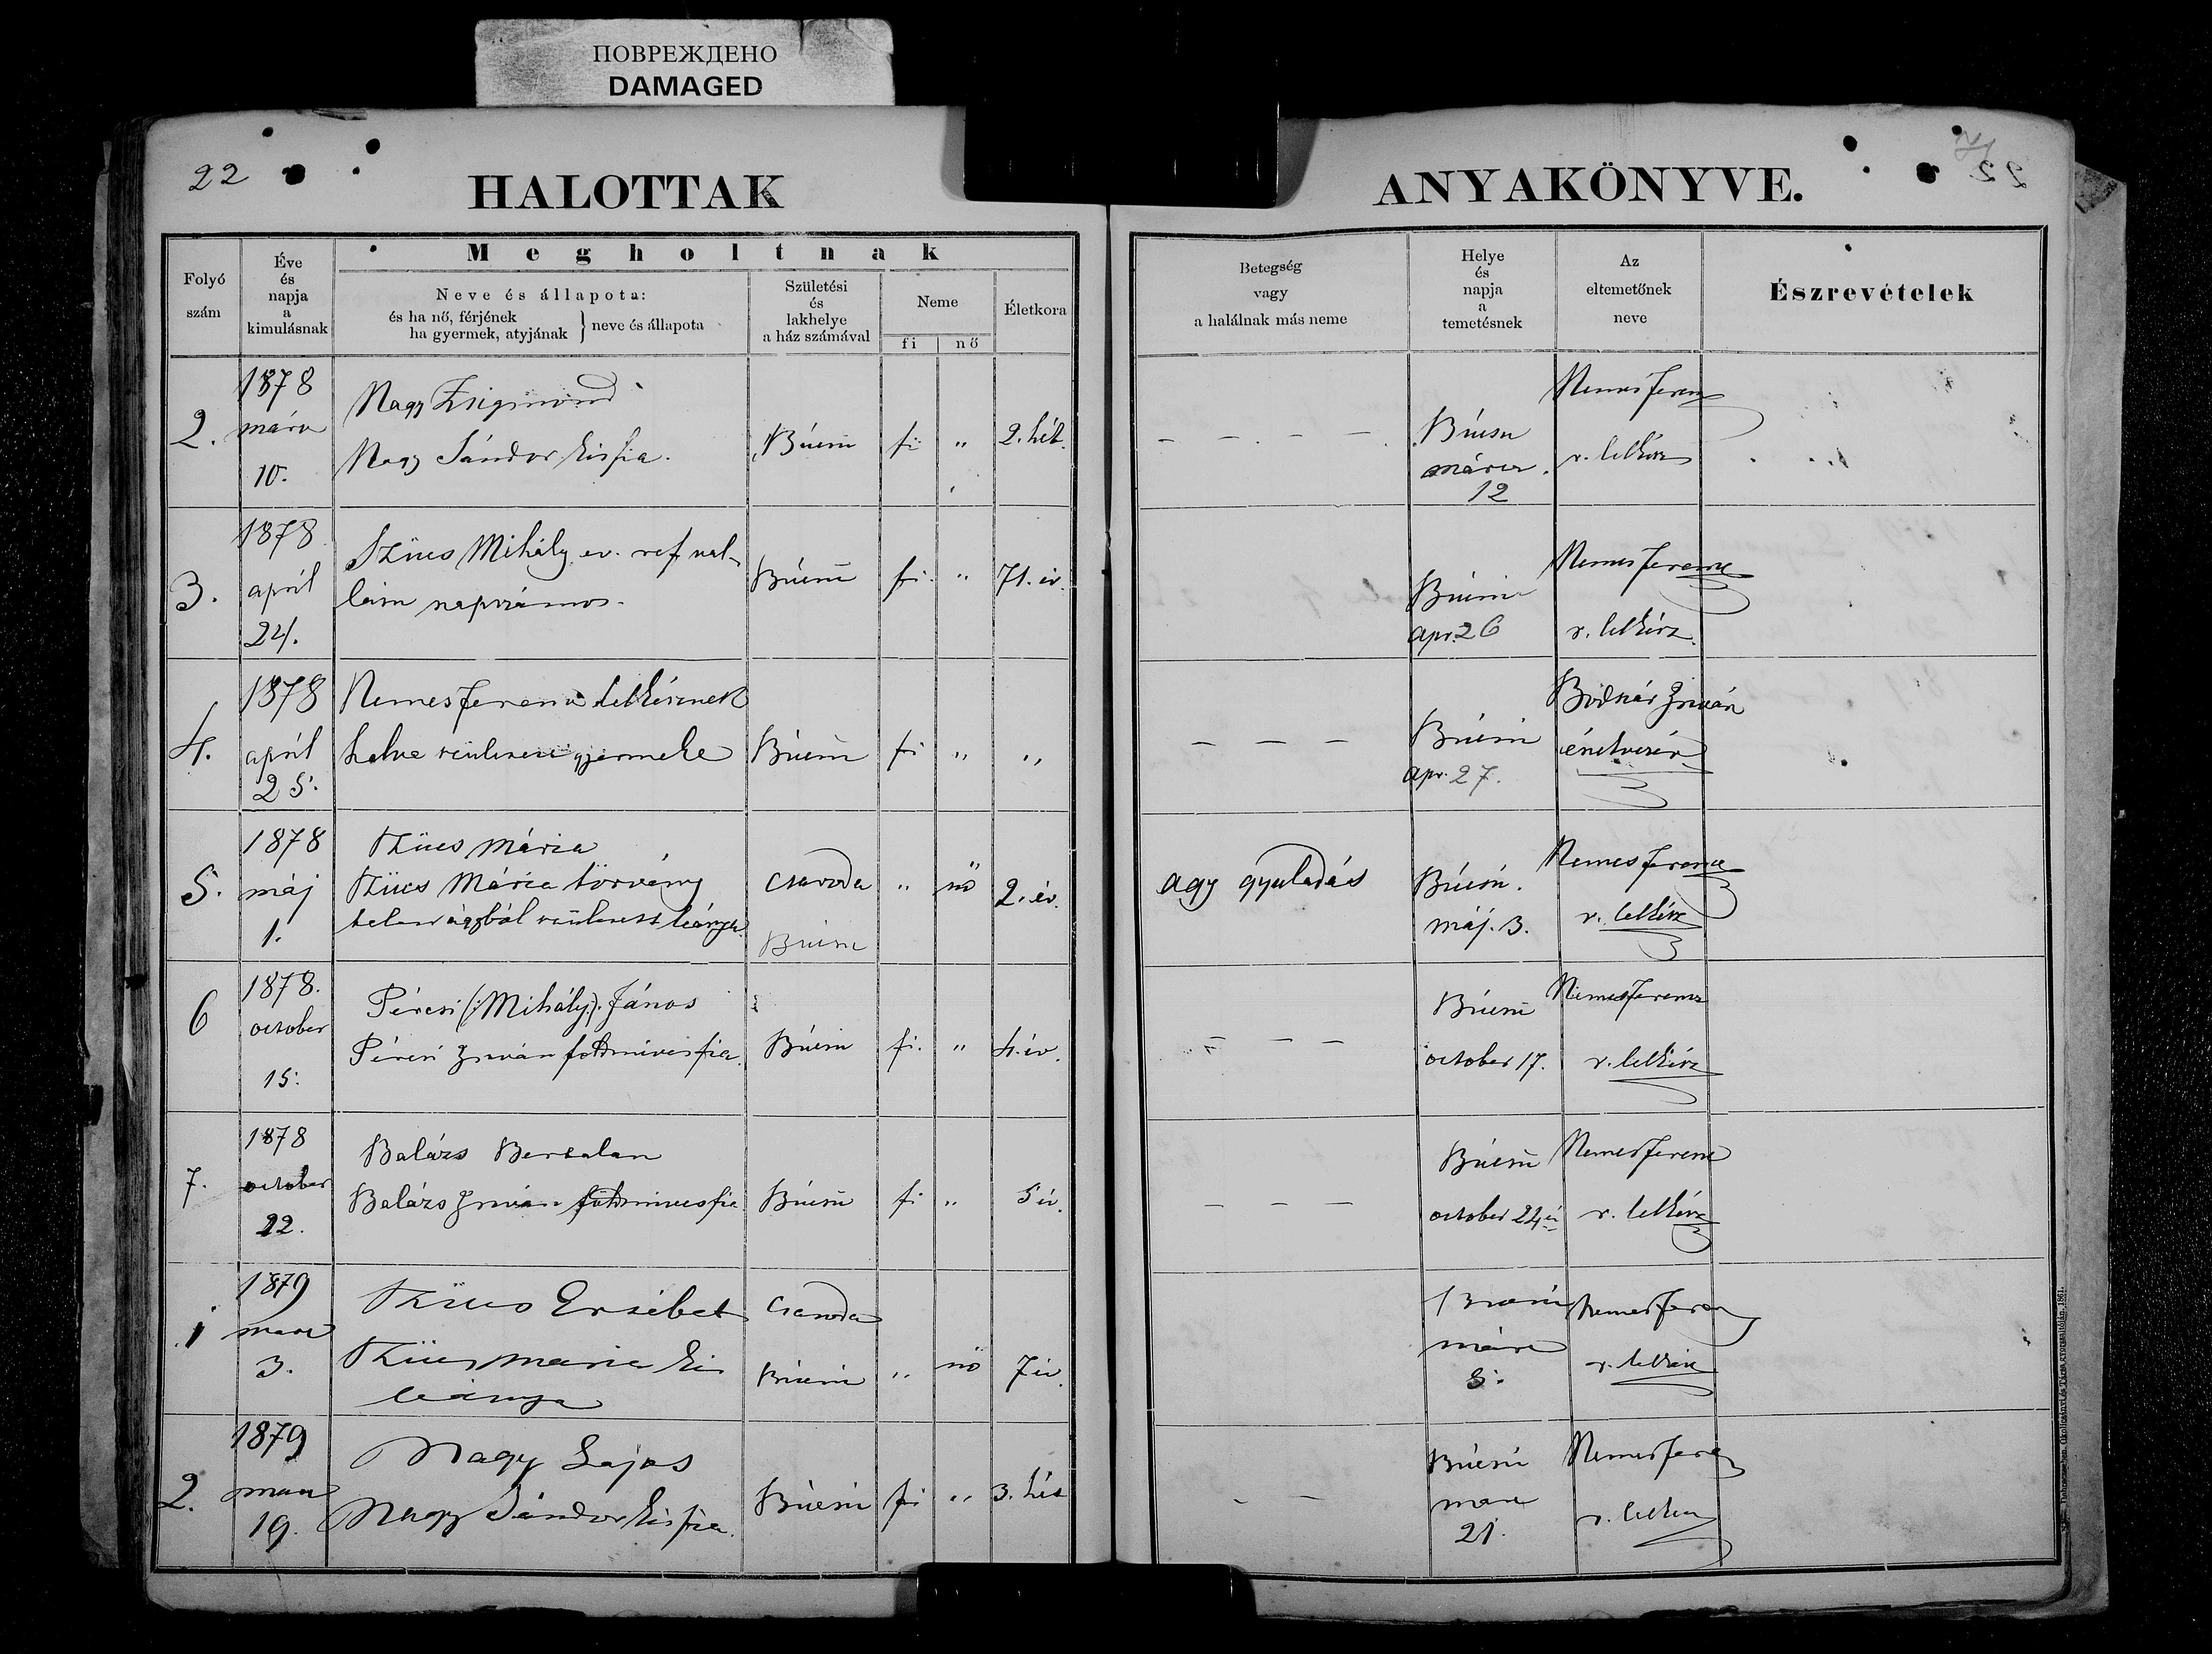 ПОВРЕЖДЕНО
DAMAGED
22
HALOTTAK
ANYAKÖNYVE.
Folyó
szám
Éve
és
napja
a
kimulásnak
Megholtnak
Neve és állapota:
és ha nő, férjének
ha gyermek, atyjának } neve és állapota
Születési
és
lakhelye
a ház számával
Neme
fi
nő
Életkora
Betegség
vagy
a halálnak más neme
Helye
és
napja
a
temetésnek
Az
eltemetőnek
neve
Észrevételek
2.
1878
márc
10.
Nagy Zsigmond
Nagy Sándor kis fia.
Búcsu
fi
„
2. hét.
– – – –
Búcsu
márcz.
12
Nemes Ferencz
r. lelkész
3.
1878
april
24.
Szücs Mihály ev. ref val-
lásu napszámos.
Búcsu
fi.
„
71. év.
Búcsu
apr. 26
Nemes Ferencz
r. lelkész.
4.
1878
april
25.
Nemes Ferencz lelkésznek
halva született gyermeke
Búcsu
fi
„
„
– – –
Búcsu
apr. 27.
Bodnár István
énekvezér
5.
1878
máj
1.
Szücs Mária
Szücs Mária törvény
telen ágyból született leánya.
Csaroda
Búcsu
„
nő
2. év.
agy gyuladás
Búcsu.
máj. 3.
Nemes Ferencz
r. lelkész
6
1878.
october
15.
Péresi (: Mihály :). János
Péresi István földmives fia.
Búcsu
fi.
„
4. év.
– – –
Búcsu
october 17.
Nemes Ferencz
r. lelkész
7.
1878
october
22.
Balázs Bertalan
Balázs István földmives fia
Búcsu
fi
„
5 év.
– – –
Búcsu
october 24én
Nemes Ferencz
r. lelkész
1
1879
marc
3.
Szücs Ersébet
Szücs maria kis
leánya
Csaroda
Búcsu
„
nő
7 év.
Búcsu
márc
5.
Nemes Ferencz
r. lelkész
2.
1879
marc
19.
Nagy Lajos
Nagy Sándor kis fia.
Búcsu
fi
„
3. hét
– –
Búcsu
marc
21.
Nemes Ferencz
r. lelkész